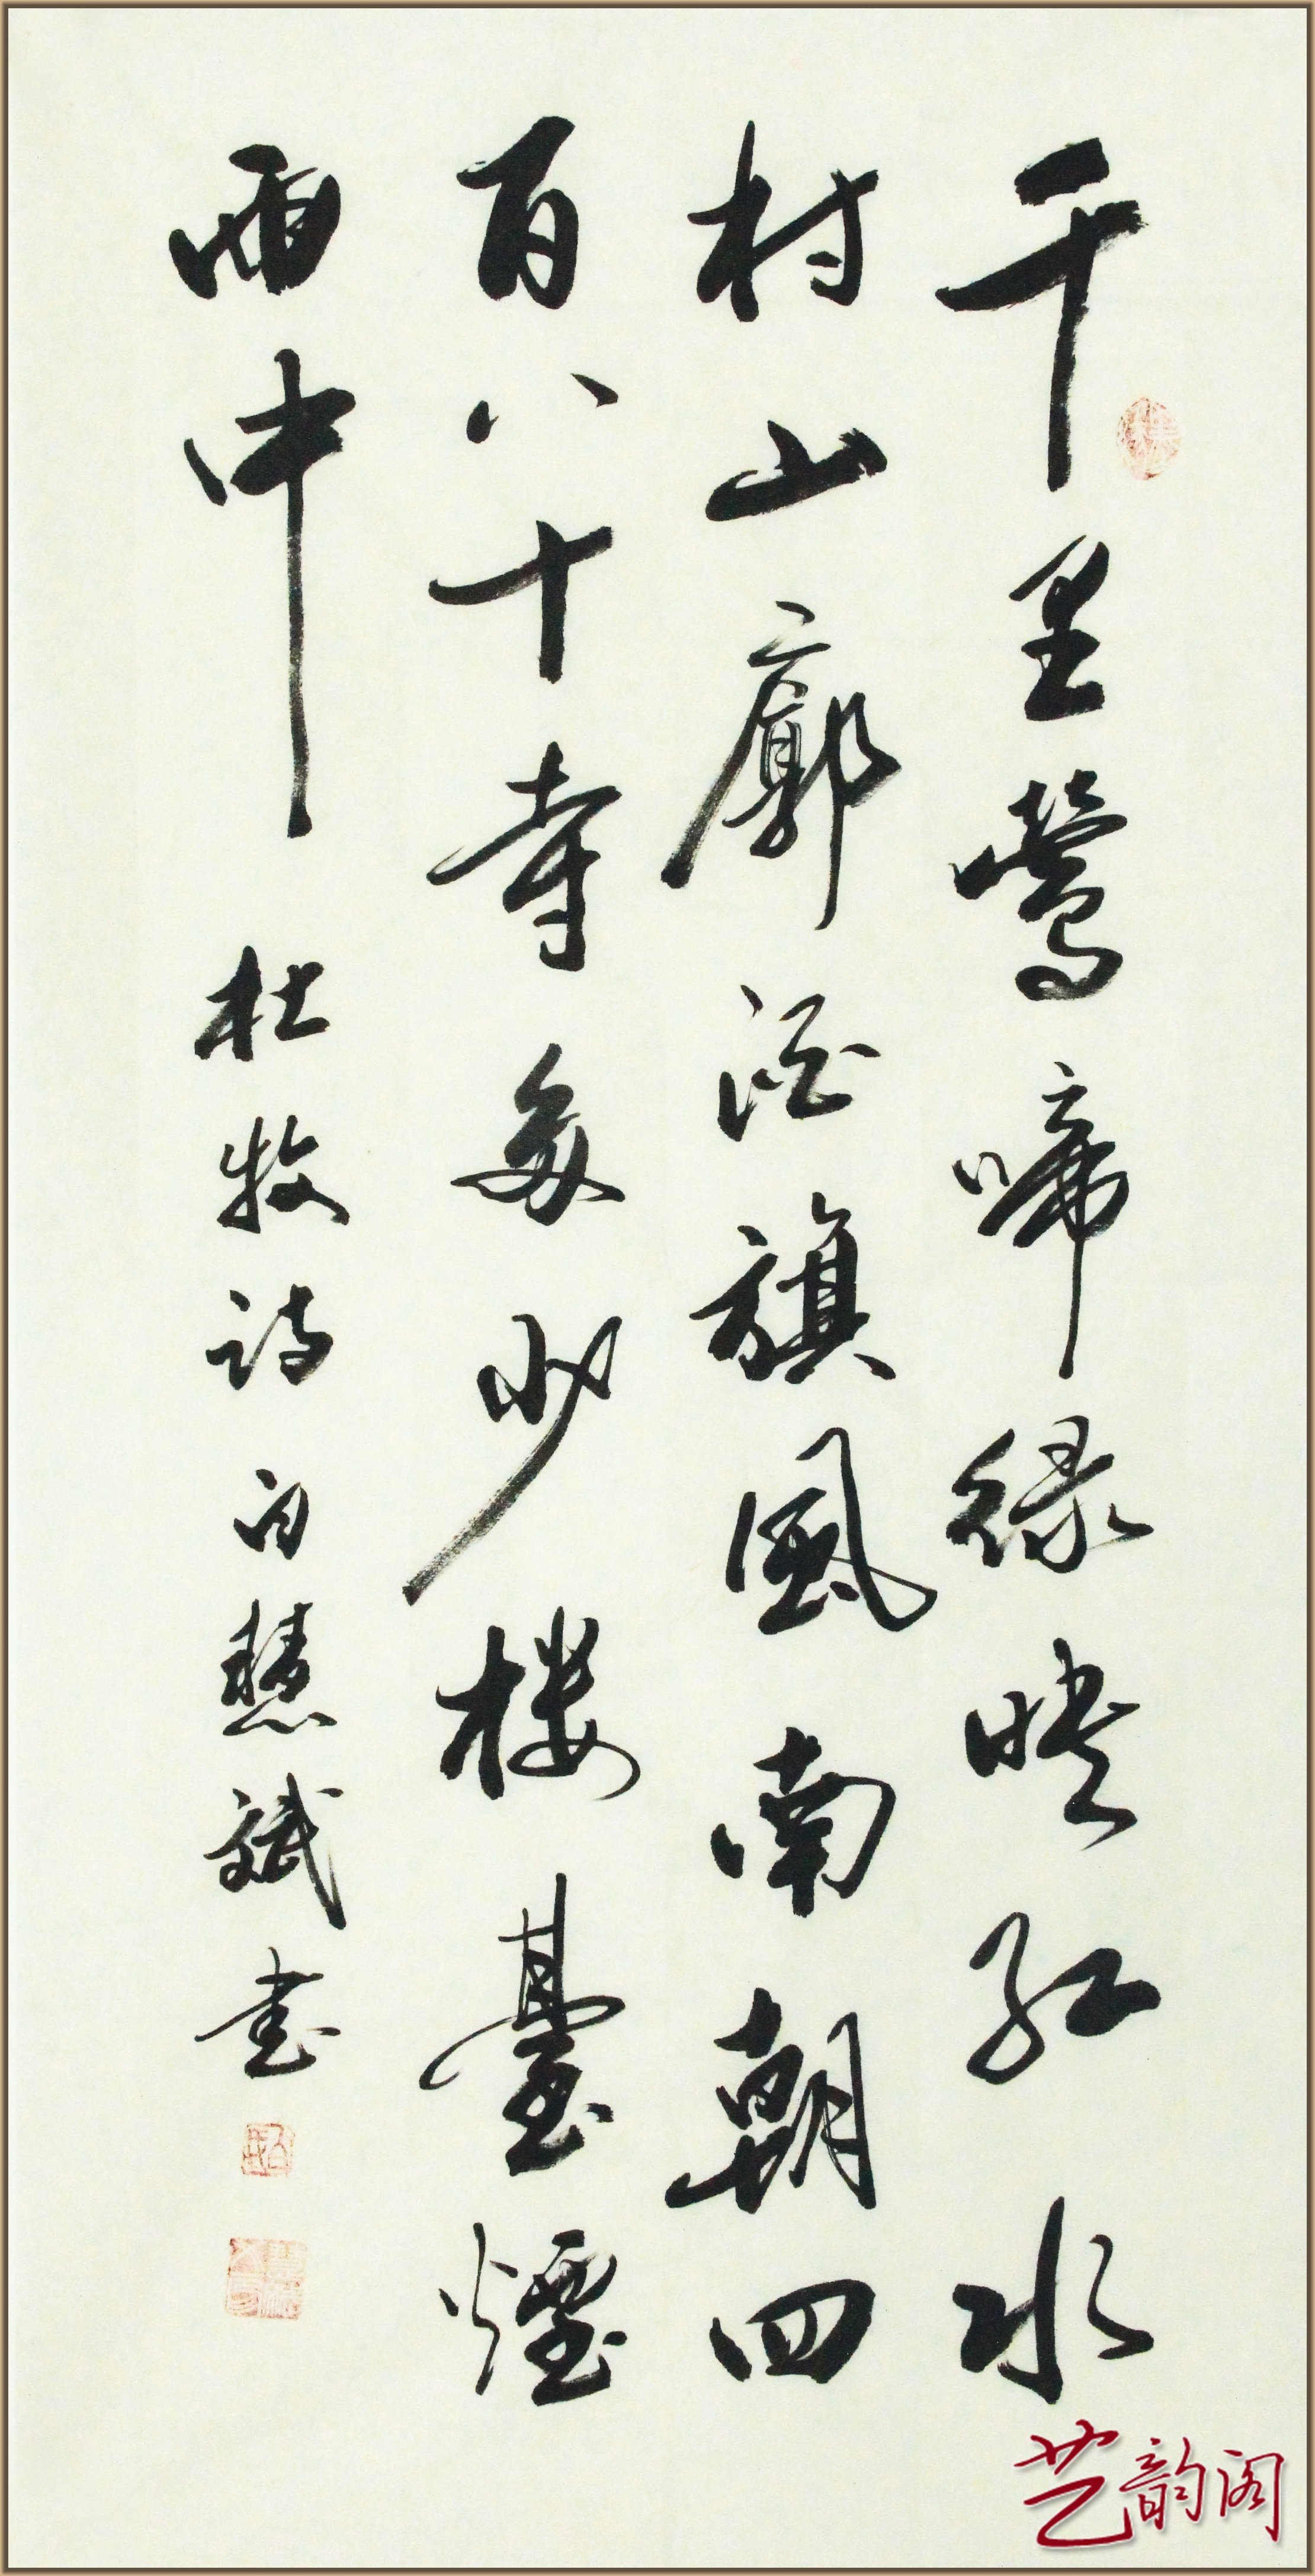 千里鶯啼緑暎红水
村山廓酒旗風南朝四
百八十寺多少楼臺煙
雨中
杜牧诗 白慧斌书
艺韵阁